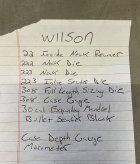 WILSON
22 Inside Neck Reamer
222 Neck Die
223 Neck Die
223 File Guide Die
308 Full Length Sizing Die
308 Case Gauge
30 cal Expander Mandrel
Bullet Seater Blank
Case Depth Gauge
Micrometer